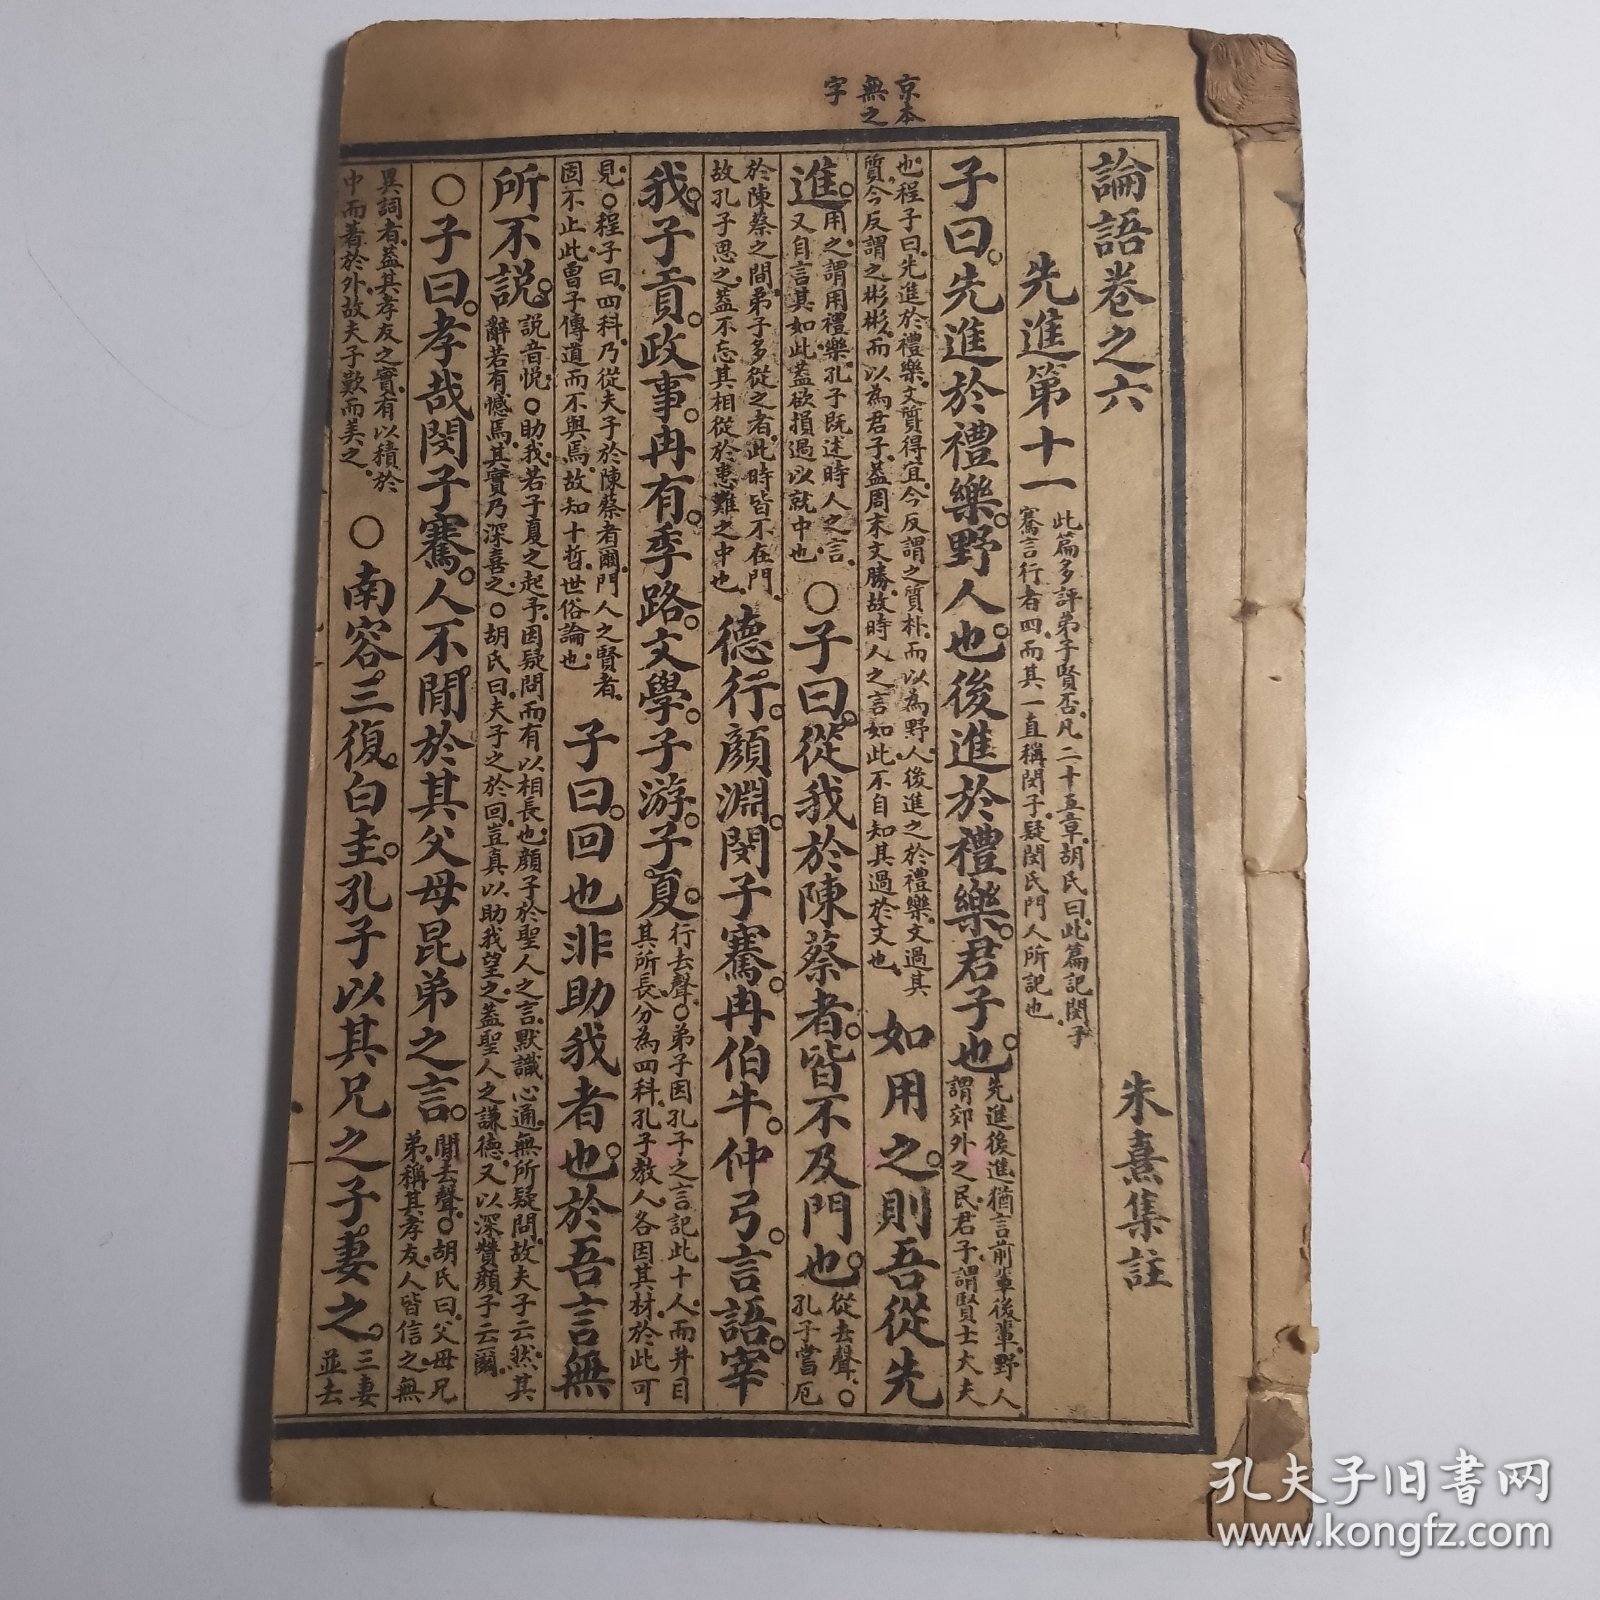 京本
無之
字
論語卷之六
朱熹集註
先進第十一
此篇多評弟子賢否凡二十五章胡氏曰此篇記閔子
騫言行者四而其一直稱閔子疑閔氏門人所記也
子曰先進於禮樂野人也後進於禮樂君子也
先進後進猶言前輩後輩野人
謂郊外之民君子謂賢士大夫
也程子曰先進於禮樂文質得宜今反謂之質朴而以為野人後進之於禮樂文過其
質今反謂之彬彬而以為君子蓋周末文勝故時人之言如此不自知其過於文也
如用之則吾從先
進
用之謂用禮樂孔子既述時人之言
又自言其如此蓋欲損過以就中也
○子曰從我於陳蔡者皆不及門也
從去聲○
孔子嘗厄
於陳蔡之間弟子多從之者此時皆不在門
故孔子思之蓋不忘其相從於患難之中也
德行顏淵閔子騫冉伯牛仲弓言語宰
我子貢政事冉有季路文學子游子夏
行去聲○弟子因孔子之言記此十人而并目
其所長分為四科孔子教人各因其材於此可
見○程子曰四科乃從夫子於陳蔡者爾門人之賢者
固不止此曾子傳道而不與焉故知十哲世俗論也
子曰回也非助我者也於吾言無
所不說
說音悅○助我若子夏之起予因疑問而有以相長也顏子於聖人之言默識心通無所疑問故夫子云然其
辭若有憾焉其實乃深喜之○胡氏曰夫子之於回豈真以助我望之蓋聖人之謙德又以深贊顏子云爾
○子曰孝哉閔子騫人不間於其父母昆弟之言
間去聲○胡氏曰父母兄
弟稱其孝友人皆信之無
異詞者蓋其孝友之實有以積於
中而著於外故夫子歎而美之
○南容三復白圭孔子以其兄之子妻之
三妻
並去
孔夫子旧书网
www.kongfz.com